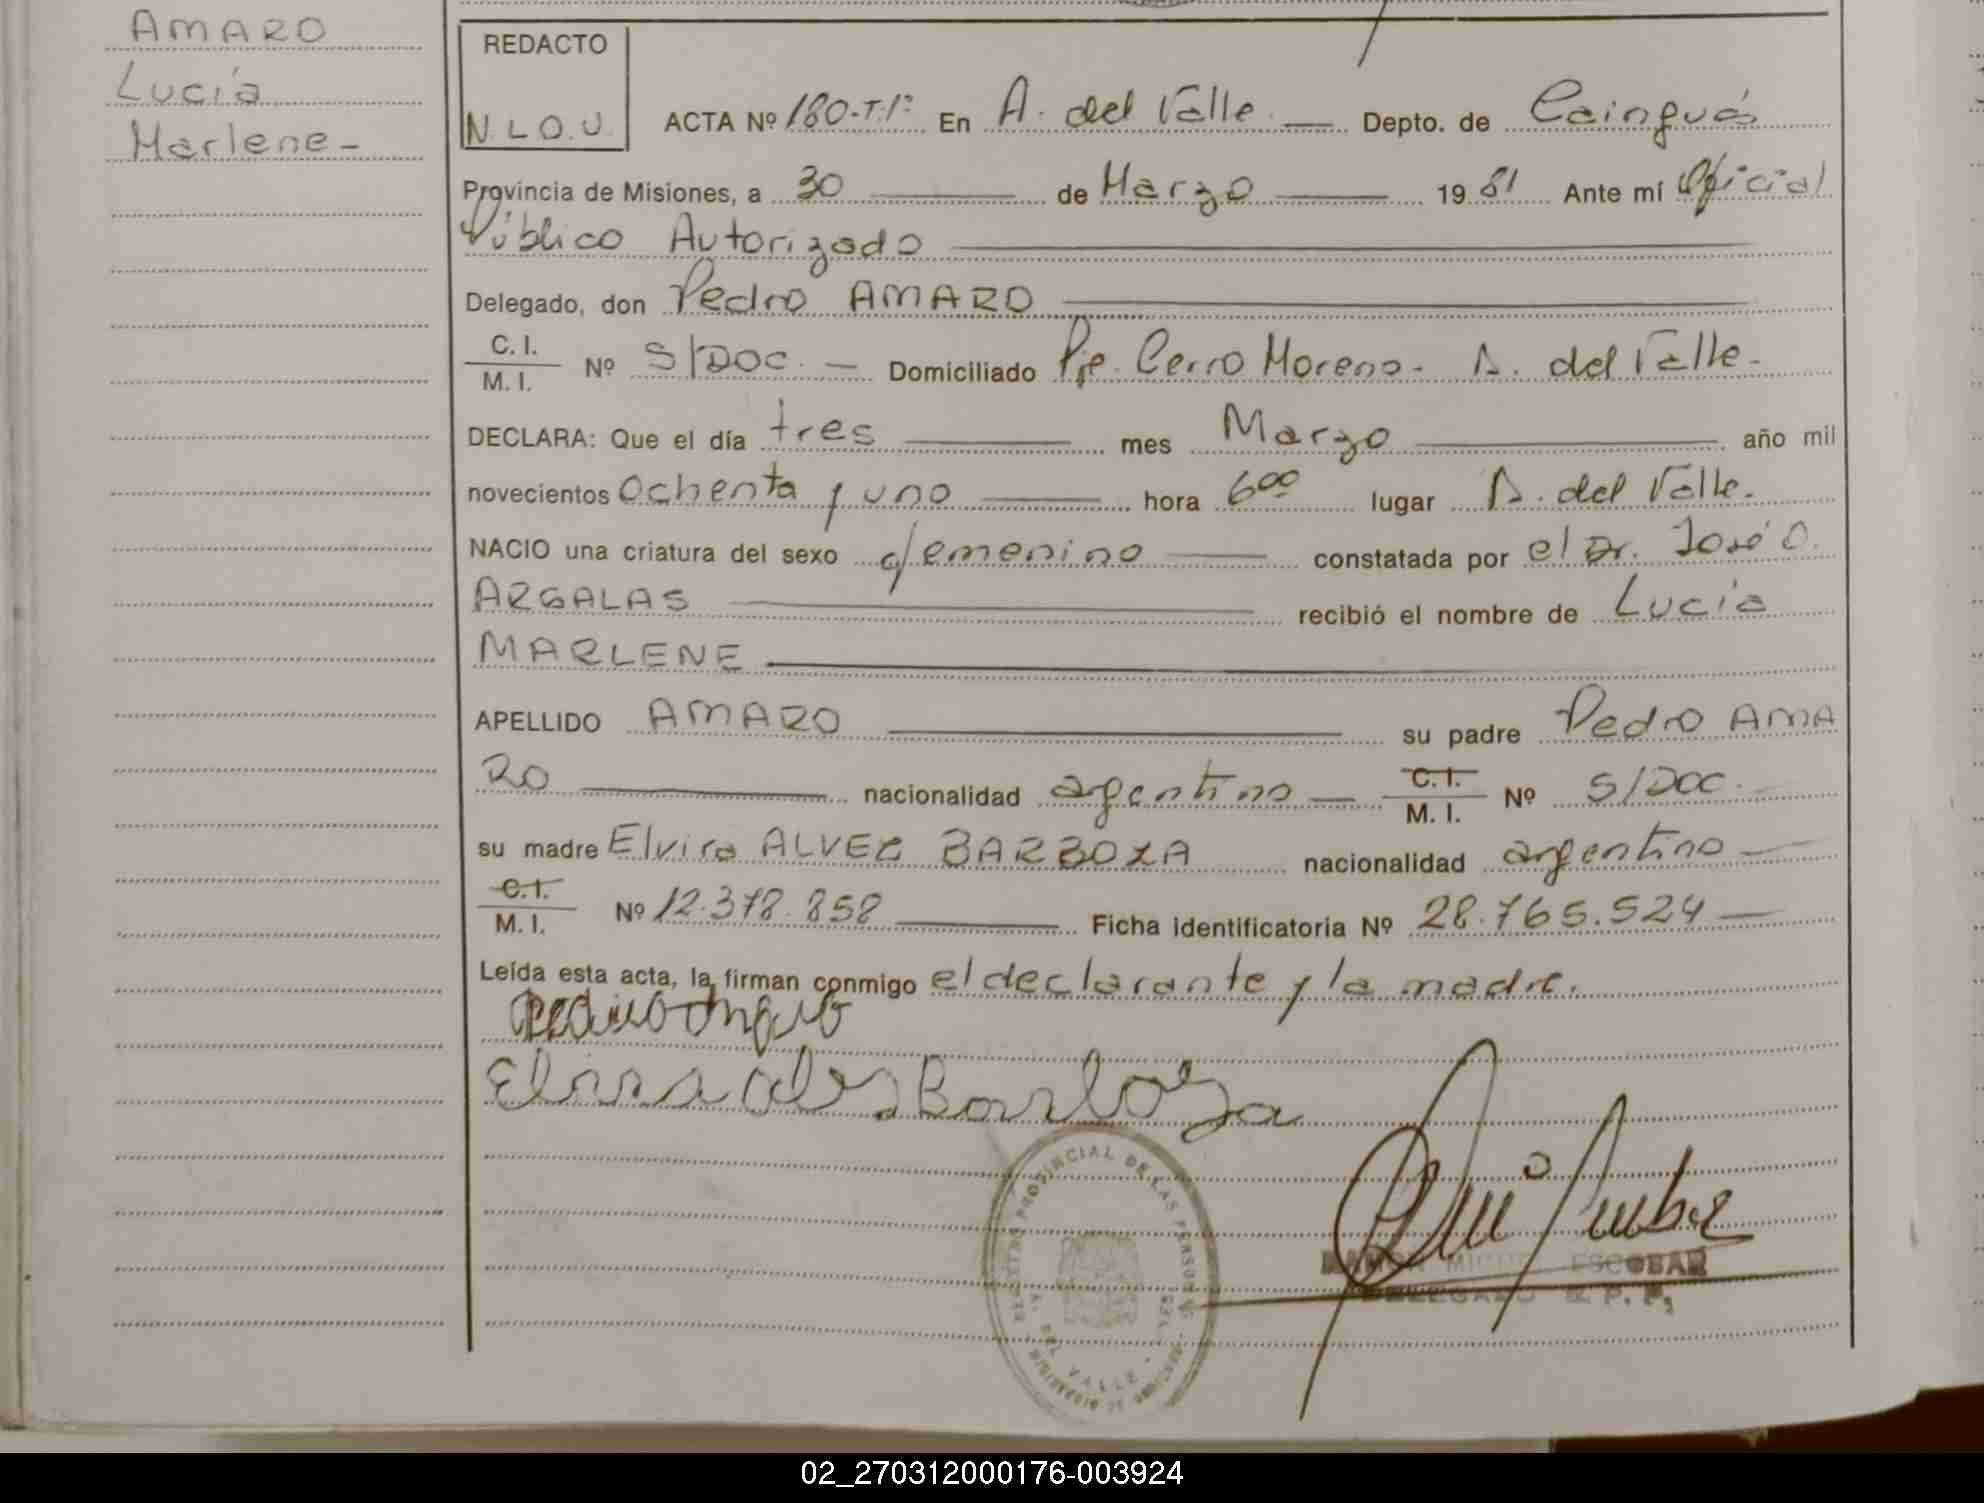 AMARO
Lucía
Marlene-
REDACTO
N.L.O.U.
ACTA Nº 180-T.1º En A. del Valle — Depto. de Cainguás
Provincia de Misiones, a 30 — de Marzo — 1981 Ante mí Oficial
Público Autorizado —
Delegado, don Pedro AMARO —
C. I. / M. I. Nº S/DOC. — Domiciliado Pje. Cerro Moreno- A. del Valle-
DECLARA: Que el día tres — mes Marzo — año mil
novecientos Ochenta y uno — hora 6:00 lugar A. del Valle.
NACIO una criatura del sexo femenino — constatada por el Dr. José O.
ARGALAS — recibió el nombre de Lucía
MARLENE —
APELLIDO AMARO — su padre Pedro AMA
RO — nacionalidad argentino — C. I. / M. I. Nº S/DOC.
su madre Elvira ALVEZ BARBOZA nacionalidad argentino —
C. I. / M. I. Nº 12.378.858 — Ficha identificatoria Nº 28.765.524 —
Leída esta acta, la firman conmigo el declarante y la madre.
Barboza
REGISTRO PROVINCIAL DE LAS PERSONAS
A. DEL VALLE
RAMON MIGUEL ESCOBAR
DELEGADO R. P. P.
02_270312000176-003924